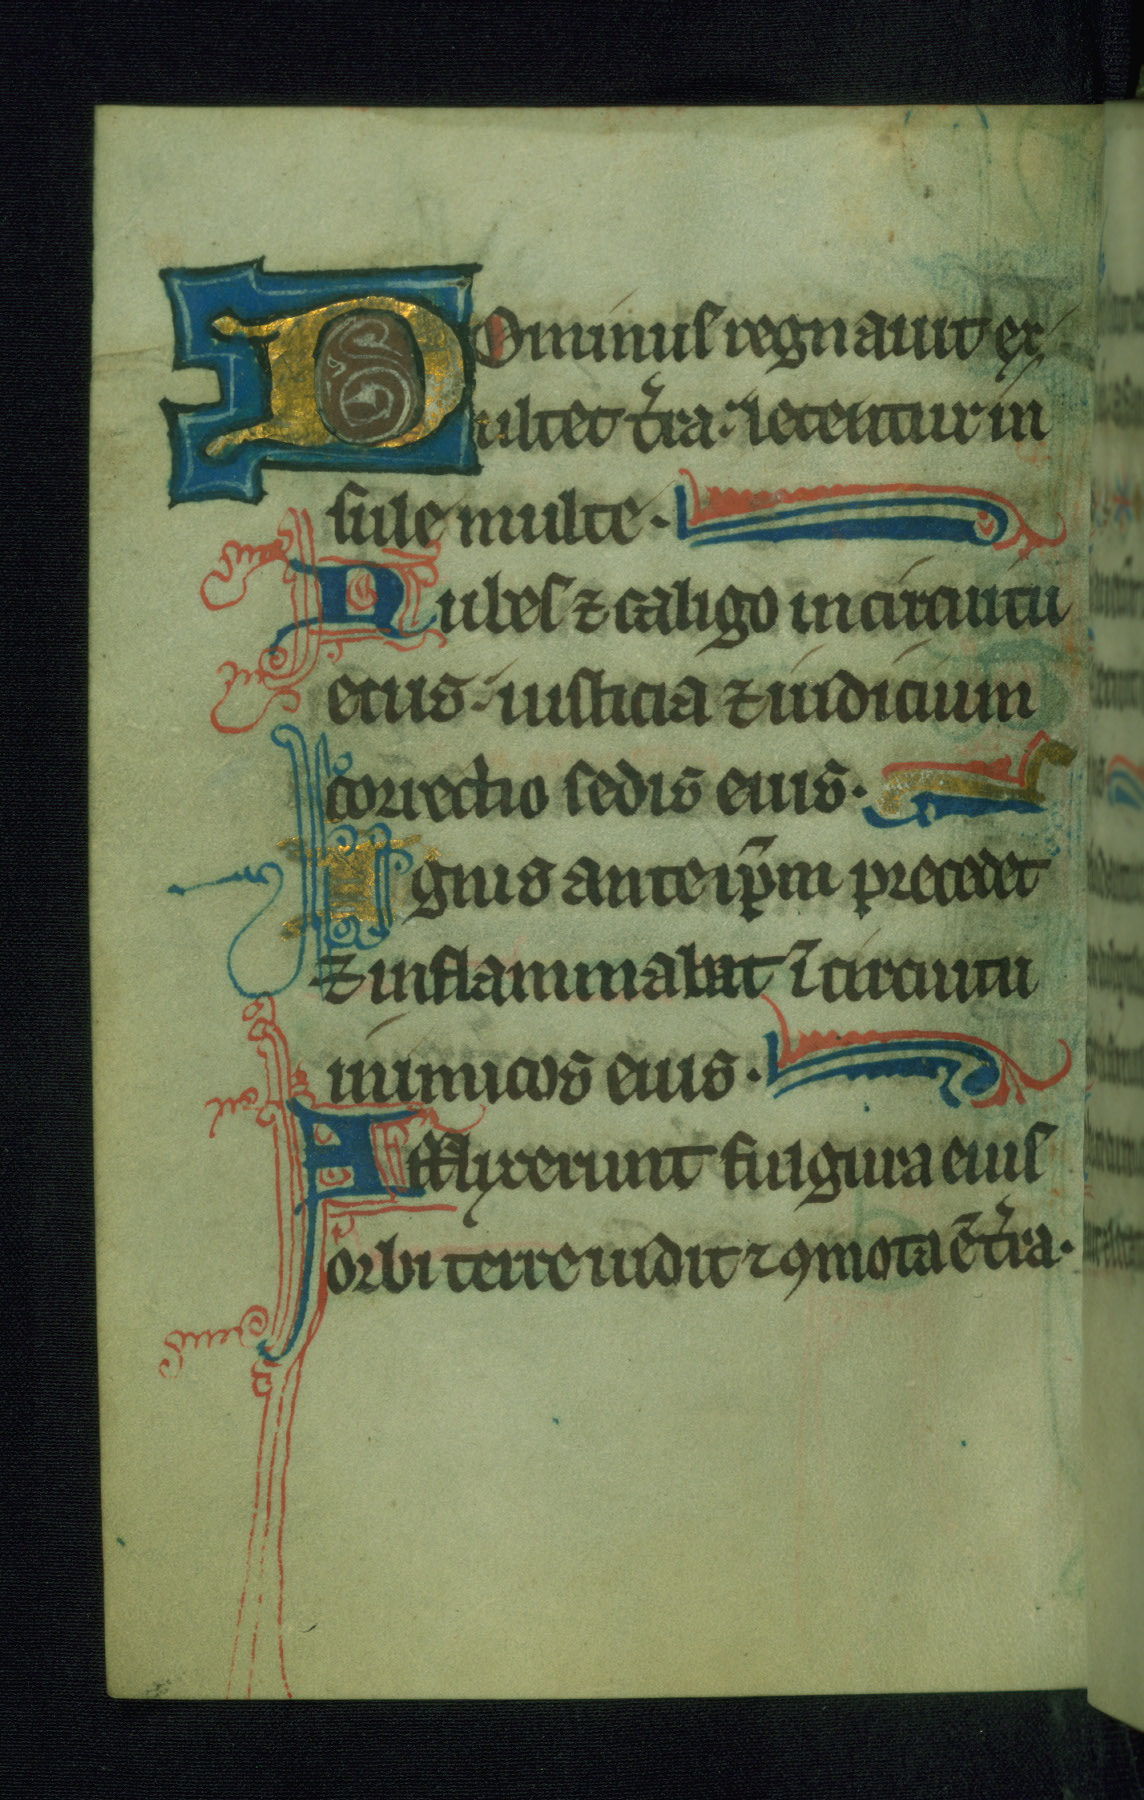 Dominus regnauit ex
ultet t̾ra· letentur in
sule multe·
Nubes ⁊ caligo in circuitu
eius· iusticia ⁊ iudicium
correctio sedis eius·
Ignis ante ip̄m precedet
⁊ inflammabit ī circuitu
inimicos eius·
Alluxerunt fulgura eius
orbi terre uidit ⁊ ꝯmota ē t̾ra·